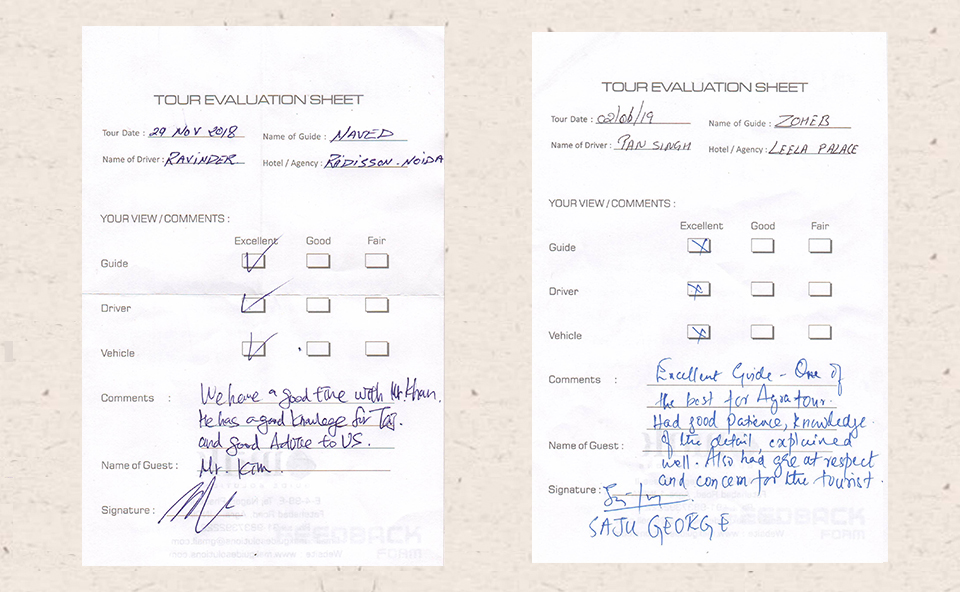 TOUR EVALUATION SHEET
Tour Date : 29 NOV 2018 Name of Guide : NAVED
Name of Driver : RAVINDER Hotel / Agency : RADISSON. NOIDA
YOUR VIEW / COMMENTS :
Excellent Good Fair
Guide
Driver
Vehicle
Comments : We have a good time with Mr. Khan.
He has a good knowlege for Taj.
and good Advice to US.
Name of Guest : Mr. Kim
Signature :
TOUR EVALUATION SHEET
Tour Date : 02/06/19 Name of Guide : ZOHEB
Name of Driver : PAN SINGH Hotel / Agency : LEELA PALACE
YOUR VIEW / COMMENTS :
Excellent Good Fair
Guide
Driver
Vehicle
Comments : Excellent Guide - One of
the best for Agra tour.
Had good patience, knowledge
Name of Guest : of the detail, explained
well. Also had great respect
and concern for the tourist.
Signature :
SAJU GEORGE
FEEDBACK
FORM